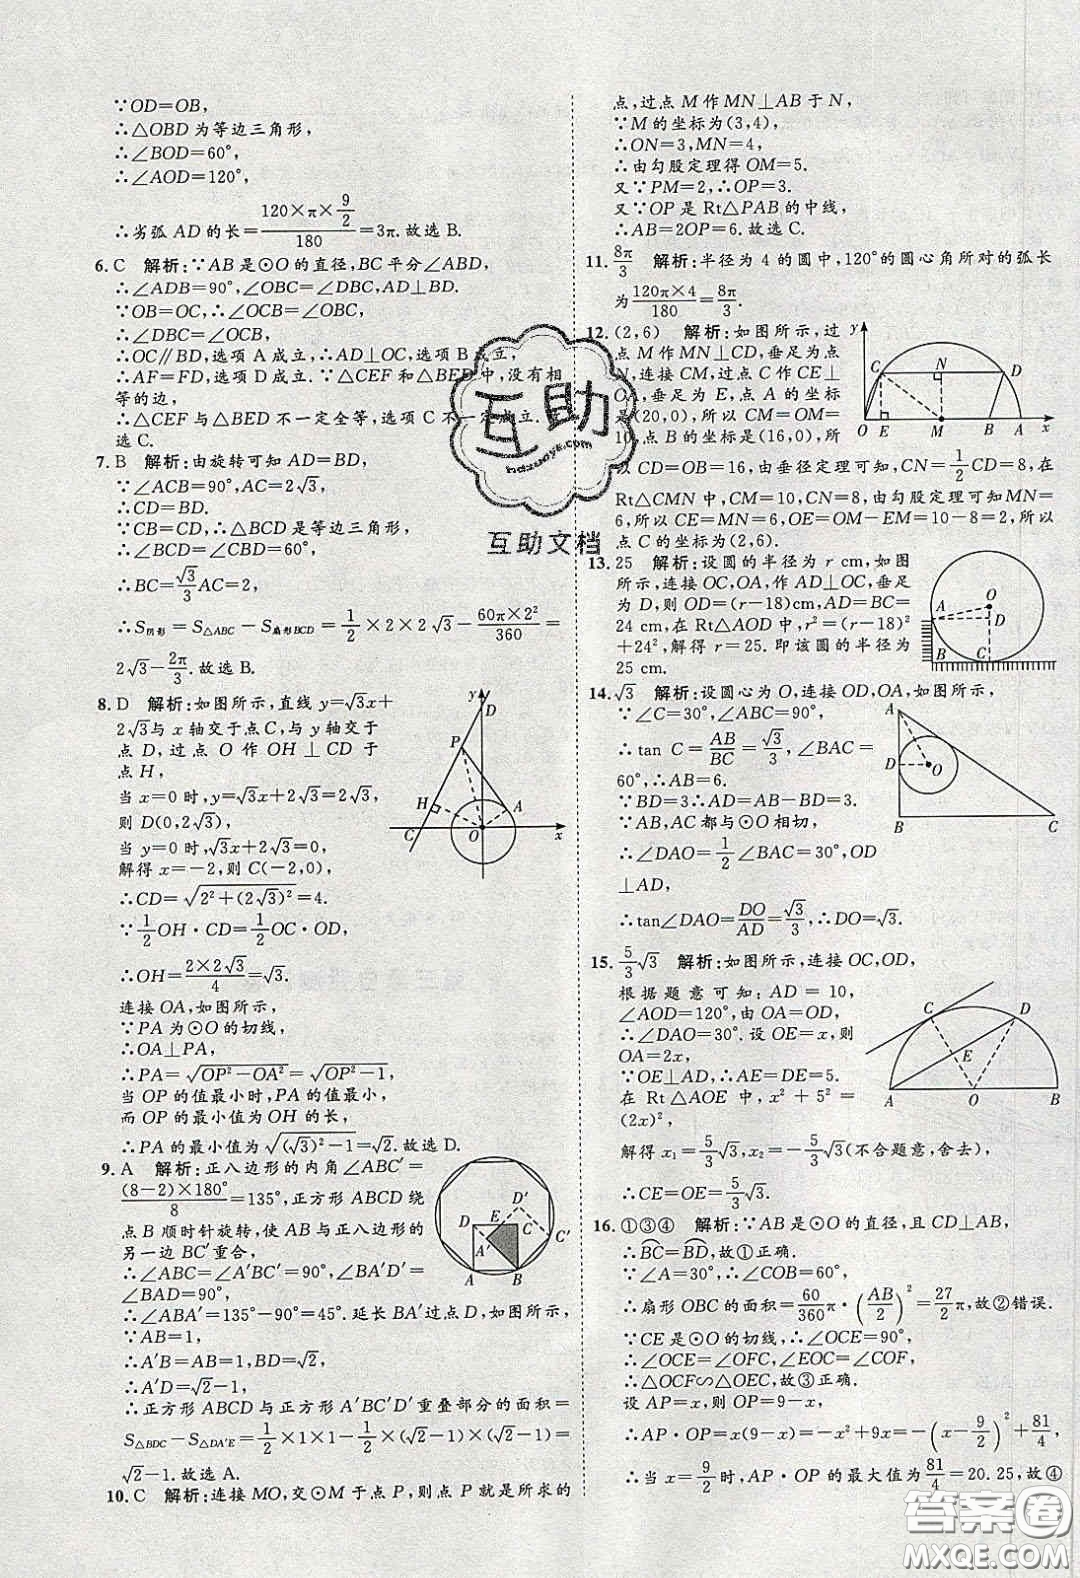 ∵OD=OB,
∴△OBD为等边三角形,
∴∠BOD=60°,
∴∠AOD=120°,
∴劣弧AD的长=(120×π×9/2)/180=3π.故选B.
6. C 解析:∵AB是⊙O的直径,BC平分∠ABD,
∴∠ADB=90°,∠OBC=∠DBC,AD⊥BD.
∵OB=OC,∴∠OCB=∠OBC,
∴∠DBC=∠OCB,
∴OC∥BD,选项A成立,∴AD⊥OC,选项B成立,
∴AF=FD,选项D成立.∵△CEF和△BED中,没有相
等的边,
∴△CEF与△BED不一定全等,选项C不一定成立.故
选C.
7. B 解析:由旋转可知AD=BD,
∵∠ACB=90°,AC=2√3,
∴CD=BD.
∵CB=CD,∴△BCD是等边三角形,
∴∠BCD=∠CBD=60°,
∴BC=√3/3AC=2,
∴S阴影=S△ABC-S扇形BCD=1/2×2×2√3-60π×2²/360=
2√3-2π/3.故选B.
8. D 解析:如图所示,直线y=√3x+
2√3与x轴交于点C,与y轴交于
点D,过点O作OH⊥CD于
点H,
当x=0时,y=√3x+2√3=2√3,
则D(0,2√3),
当y=0时,√3x+2√3=0,
解得x=-2,则C(-2,0),
∴CD=√(2²+(2√3)²)=4.
∵1/2OH·CD=1/2OC·OD,
∴OH=(2×2√3)/4=√3.
连接OA,如图所示.
∵PA为⊙O的切线,
∴OA⊥PA,
∴PA=√(OP²-OA²)=√(OP²-1),
当OP的值最小时,PA的值最小,
而OP的最小值为OH的长,
∴PA的最小值为√((√3)²-1)=√2.故选D.
y D P H A C O x
9. A 解析:正八边形的内角∠ABC′=
(8-2)×180°/8=135°,正方形ABCD绕
点B顺时针旋转,使AB与正八边形的
另一边BC′重合,
∴∠ABC=∠A′BC′=90°,∠BAD′=
∠BAD=90°,
∴∠ABA′=135°-90°=45°.延长BA′过点D,如图所示,
∵AB=1,
∴A′B=AB=1,BD=√2,
∴A′D=√2-1,
∴正方形ABCD与正方形A′BC′D′重叠部分的面积=
S△BDC-S△DA′E=1/2×1×1-1/2×(√2-1)×(√2-1)=
√2-1.故选A.
D′ D E C C′ A′ A B
10. C 解析:连接MO,交⊙M于点P,则点P就是所求的
点,过点M作MN⊥AB于N,
∵M的坐标为(3,4),
∴ON=3,MN=4,
∴由勾股定理得OM=5.
又∵PM=2,∴OP=3.
又∵OP是Rt△PAB的中线,
∴AB=2OP=6.故选C.
11. 8π/3 解析:半径为4的圆中,120°的圆心角所对的弧长
为120π×4/180=8π/3.
12. (2,6) 解析:如图所示,过
点M作MN⊥CD,垂足为点
N,连接CM,过点C作CE⊥
OA,垂足为E,点A的坐标
是(20,0),所以CM=OM=
10,点B的坐标为(16,0),所
以CD=OB=16,由垂径定理可知,CN=1/2CD=8,在
Rt△CMN中,CM=10,CN=8,由勾股定理可知MN=
6,所以CE=MN=6,OE=OM-EM=10-8=2,所以
点C的坐标为(2,6).
y C N D O E M B A x
13. 25 解析:设圆的半径为r cm,如图
所示,连接OC,OA,作AD⊥OC,垂足
为D,则OD=(r-18)cm,AD=BC=
24 cm,在Rt△AOD中,r²=(r-18)²
+24²,解得r=25.即该圆的半径为
25 cm.
O A D B C
14. √3 解析:设圆心为O,连接OD,OA,如图所示,
∵∠C=30°,∠ABC=90°,
∴tan C=AB/BC=√3/3,∠BAC=
60°,∴AB=6.
∵BD=3,∴AD=3.
∵AB,AC都与⊙O相切,
∴∠DAO=1/2∠BAC=30°,OD
⊥AD,
∴tan∠DAO=DO/AD=√3/3,∴DO=√3.
A D O B C
15. 5/3√3 解析:如图所示,连接OC,OD,
根据题意可知:AD=10,
∠AOD=120°,由OA=OD,
∴∠DAO=30°.设OE=x,则
OA=2x,
∵OE⊥AD,∴AE=DE=5.
在Rt△AOE中,x²+5²=
(2x)²,
解得x₁=5/3√3,x₂=-5/3√3(不合题意,舍去),
∴CE=OE=5/3√3.
C D E A O B
16. ①③④ 解析:∵AB是⊙O的直径,且CD⊥AB,
∴BC=BD,故①正确.
∵∠A=30°,∴∠COB=60°,
∴扇形OBC的面积=60/360π·(AB/2)²=27/2π,故②错误.
∵CE是⊙O的切线,∴∠OCE=90°,
∴∠OCE=∠OFC,∠EOC=∠COF,
∴△OCF∽△OEC,故③正确.
设AP=x,则OP=9-x,
∴AP·OP=x(9-x)=-x²+9x=-(x-9/2)²+81/4,
∴当x=9/2时,AP·OP的最大值为81/4=20.25,故④
互助
hdzuoye.com
互助文档
答案圈
MXQE.COM